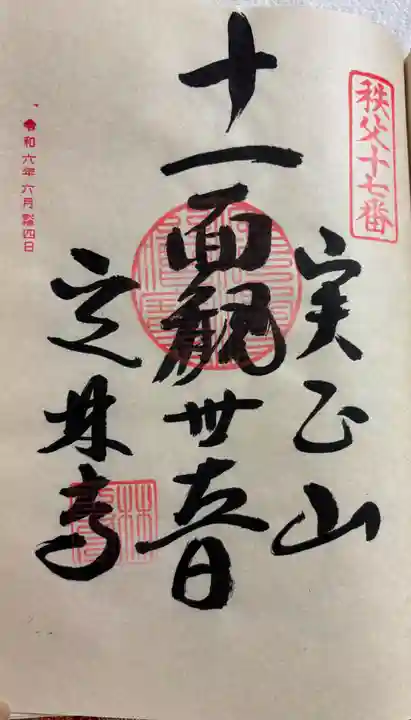 秩父十七番
実正山
十一面観世音
定林寺
令和六年六月廿四日